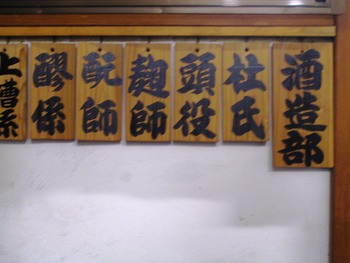 酒造部
杜氏
頭役
麹師
酛師
醪係
上槽系